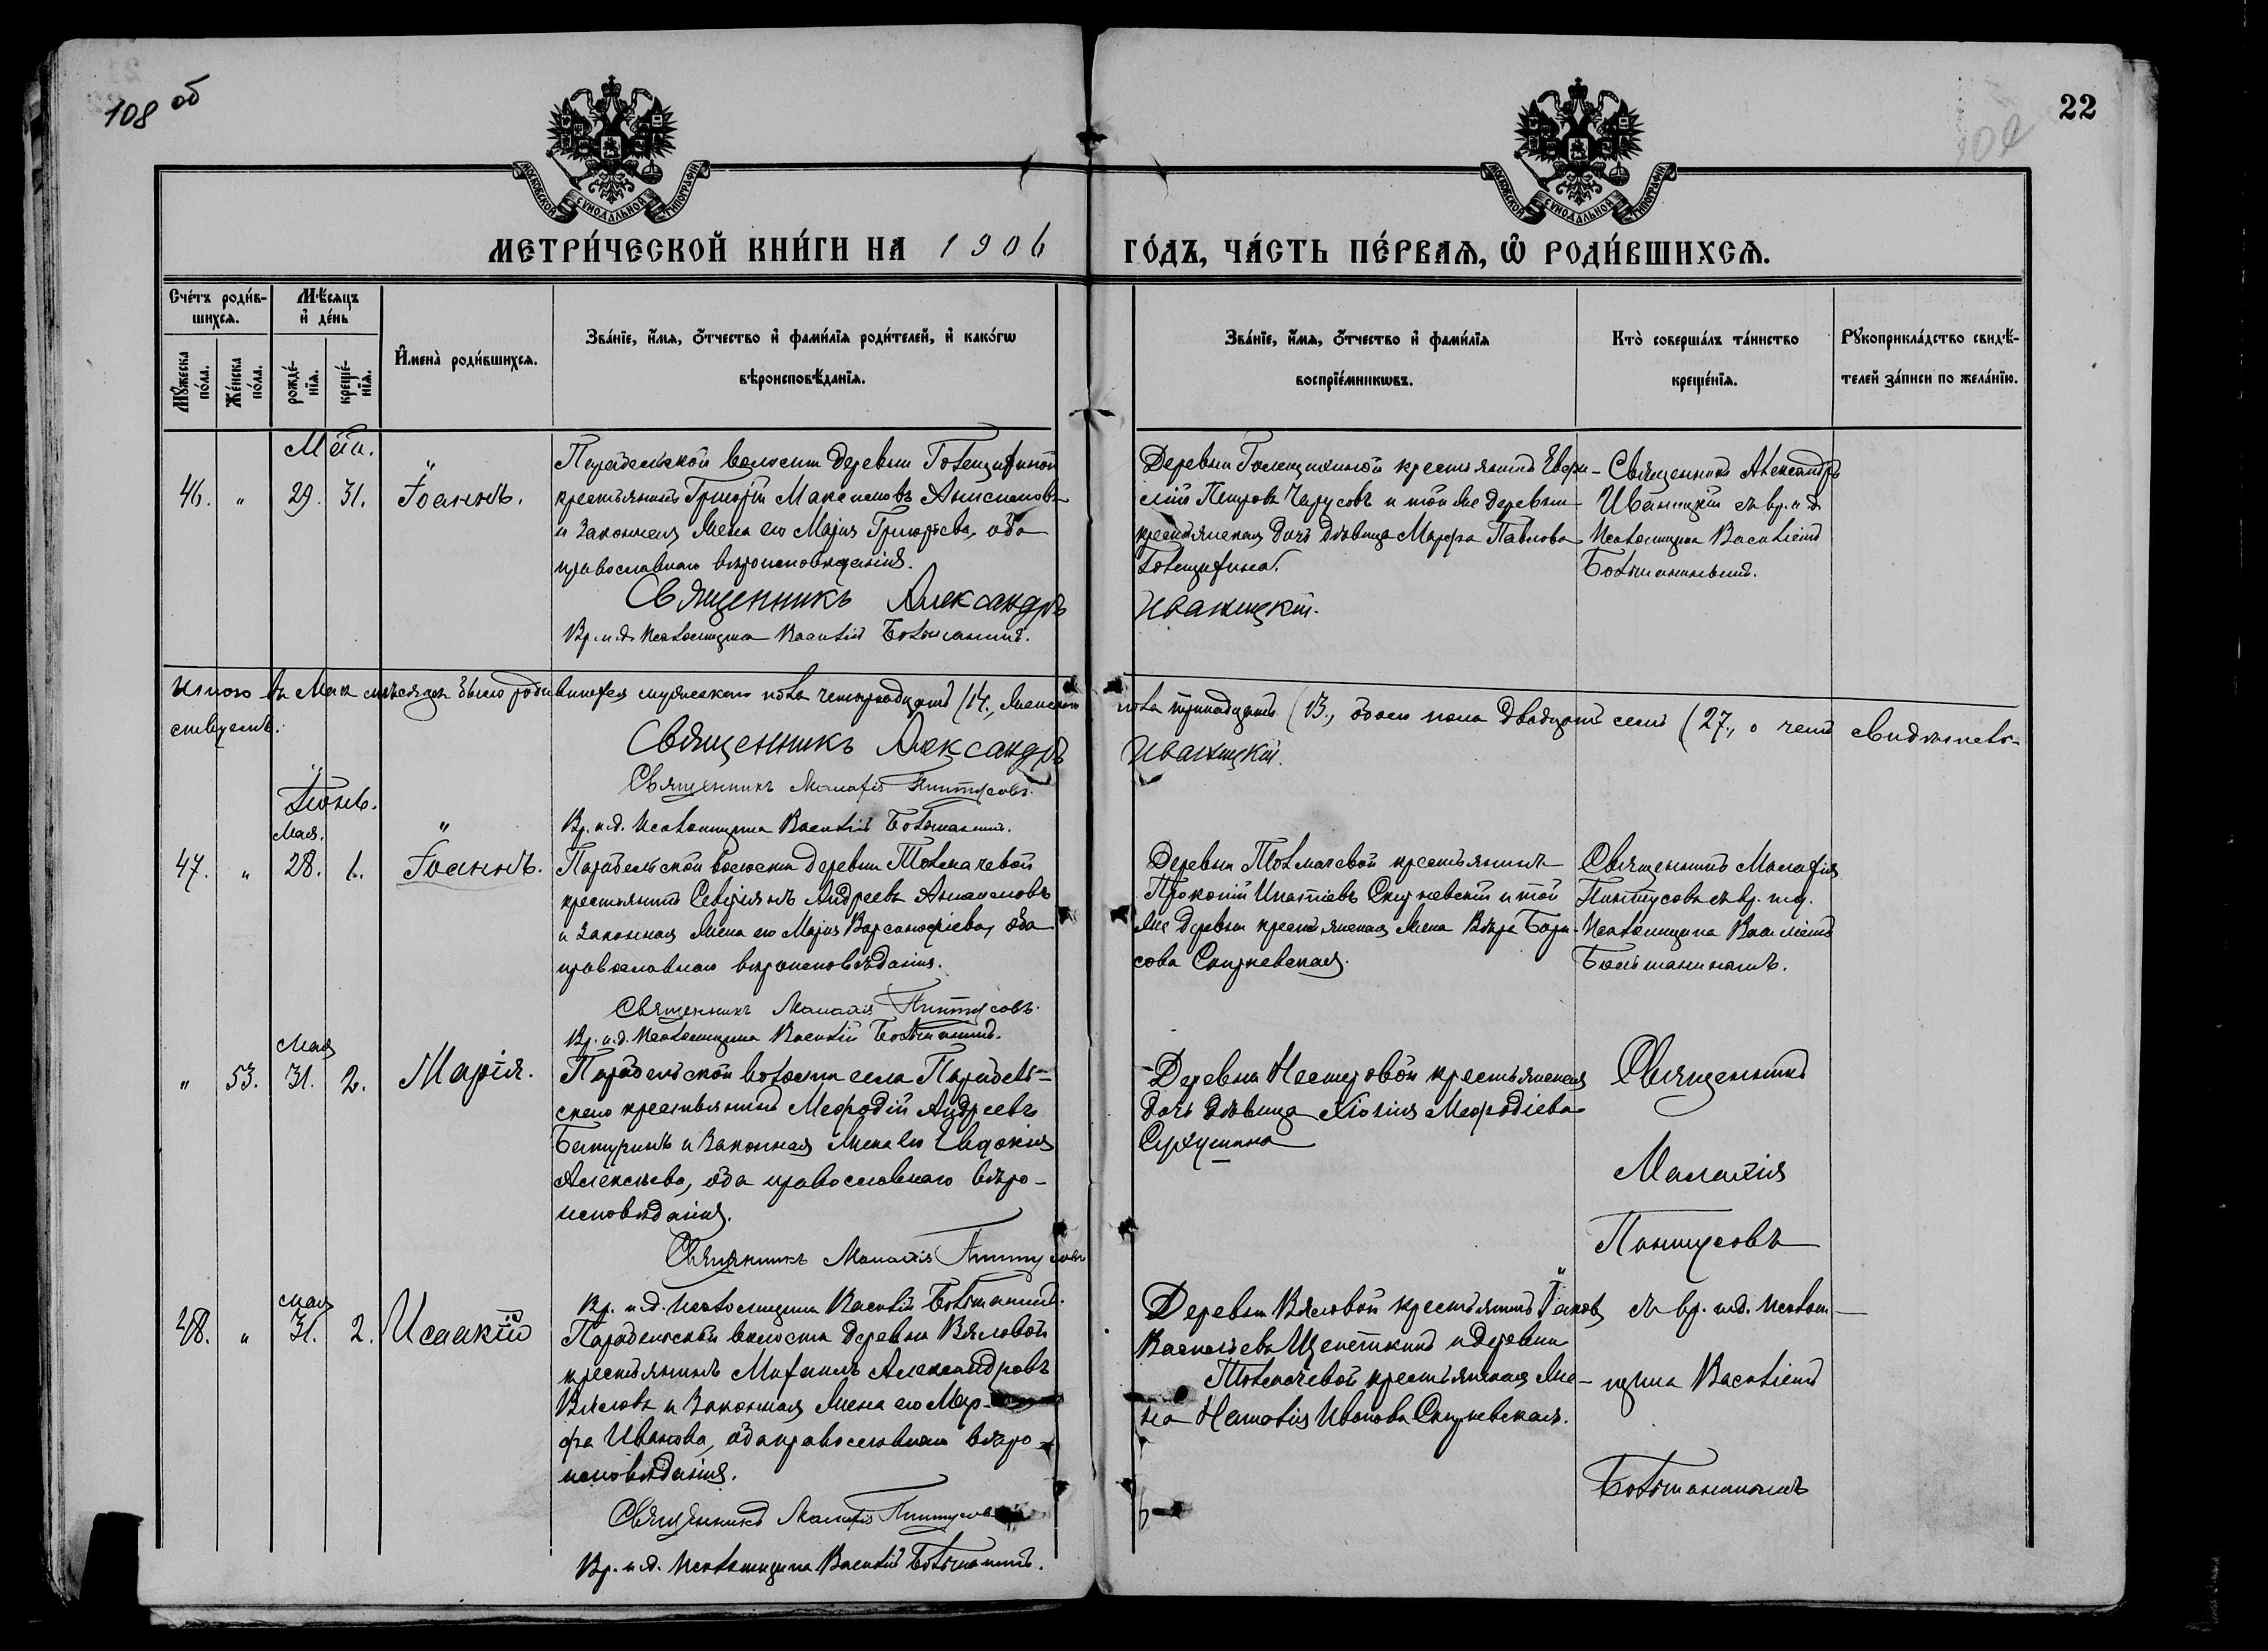 108 об
22
МОСКОВСКОЙ СѴНОДАЛЬНОЙ ТИПОГРАФІИ
МОСКОВСКОЙ СѴНОДАЛЬНОЙ ТИПОГРАФІИ
МЕТРИ́ЧЕСКОЙ КНИ́ГИ НА 1906
ГО́ДЪ, ЧА́СТЬ ПЕ́РВАѦ, Ѽ РОДИ́ВШИХСѦ.
Сче́тъ роди́в-
шихсѧ.
Мꙋ́жеска по́ла.
Же́нска по́ла.
Мѣ́сѧцъ
и҆ де́нь
рожде́-
нїѧ.
креще́-
нїѧ.
И҆мена̀ роди́вшихсѧ.
Зва́нїе, и҆́мѧ, ѻ҆́тчество и҆ фами́лїѧ роди́телей, и҆ како́гѡ
вѣроисповѣ́данїѧ.
Зва́нїе, и҆́мѧ, ѻ҆́тчество и҆ фами́лїѧ
воспрїе́мникѡвъ.
Кто̀ соверша́лъ та́инство
креще́нїѧ.
Рꙋкоприкла́дство свидѣ́-
телей за́писи по жела́нїю.
Май.
46. " 29. 31. Іоаннъ.
Парабельской волости деревни Голещихиной
крестьянинъ Григорій Максимовъ
и законная жена его Марія Григорьева, оба
православнаго вѣроисповѣданія.
Священникъ Александръ
Вр. и.д. псаломщика Василій Болтманинъ.
Деревни Голещихиной крестьянинъ Евфи-
мій Петровъ Чарусовъ и той же деревни
крестьянская дочь дѣвица Марфа Павлова
Голещихина.
Иваницкій.
Священникъ Александръ
Иваницкій съ вр. и.д.
псаломщика Василіемъ
Болтманинымъ.
Итого въ Маѣ мѣсяцѣ было родившихся мужескаго пола четырнадцать (14., женскаго
пола тринадцать (13., обоего пола двадцать семь (27., о чемъ свидѣтель-
ствуемъ:
Священникъ Александръ
Иваницкій.
Священникъ Малахія Пинтусовъ.
Вр. и.д. псаломщика Василій Болтманинъ.
Іюнь.
Мая.
47. " 28. 1. Іоаннъ.
Парабельской волости деревни Толмачевой
крестьянинъ Севиріянъ Андреевъ
и законная жена его Марія Варсанофіева, оба
православнаго вѣроисповѣданія.
Священникъ Малахія Пинтусовъ.
Вр. и.д. псаломщика Василій Болтманинъ.
Деревни Толмачевой крестьянинъ
Прокопій Ипатіевъ Скирневскій и той
же деревни крестьянская жена Вѣра Бори-
сова Скирневская.
Священникъ Малафія
Пинтусовъ съ вр. и.д.
псаломщика Василіемъ
Болтманинымъ.
Мая
" 53. 31. 2. Марія.
Парабельской волости села Парабель-
скаго крестьянинъ Меѳодій Андреевъ
Батуринъ и законная жена его Евдокія
Алексѣева, оба православнаго вѣро-
исповѣданія.
Священникъ Малахія Пинтусовъ
Вр. и.д. псаломщика Василій Болтманинъ.
Деревни Нестеровой крестьянская
дочь дѣвица Хіонія Меѳодіева
Сухушина
Священникъ
Малахія
Пинтусовъ
съ вр. и.д. псалом-
щика Василіемъ
Болтманинымъ
мая
48. " 31. 2. Исаакій
Парабельской волости деревни Вяловой
крестьянинъ Михаилъ Александровъ
Вяловъ и законная жена его Мар-
фа Иванова, оба православнаго вѣро-
исповѣданія.
Священникъ Малахія Пинтусовъ
Вр. и.д. псаломщика Василій Болтманинъ.
Деревни Вяловой крестьянинъ Іаковъ
Васильевъ Щепеткинъ и деревни
Толмачевой крестьянская же-
на Наталія Иванова Скирневская.